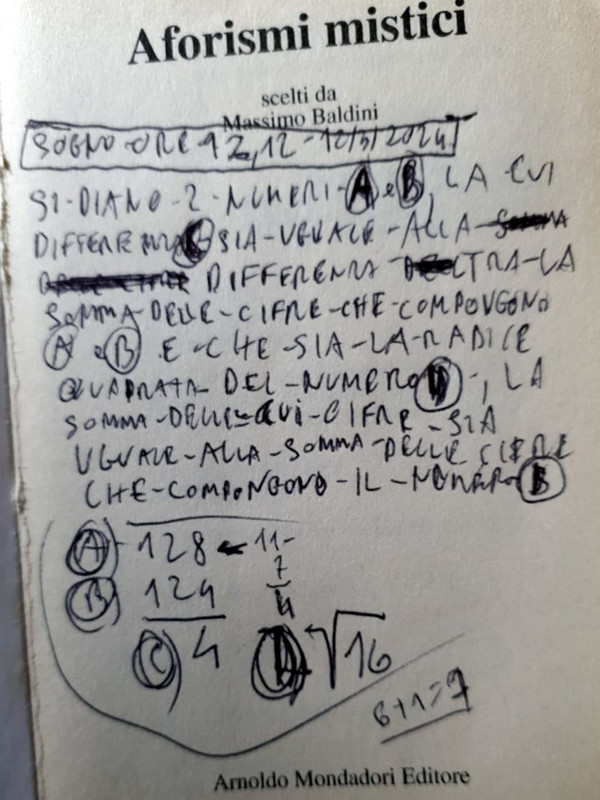 Aforismi mistici
scelti da
Massimo Baldini
SOGNO-ORE-12,12-12/3/2024
SI-DIANO-2-NUMERI-A e B, LA CUI
DIFFERENZA C SIA-UGUALE-ALLA-
DIFFERENZA TRA-LA
SOMMA-DELLE-CIFRE-CHE-COMPONGONO
A e B E-CHE-SIA-LA-RADICE
QUADRATA DEL-NUMERO D-, LA
SOMMA-DELLE-CUI-CIFRE-SIA
UGUALE-ALLA-SOMMA-DELLE CIFRE
CHE-COMPONGONO-IL-NUMERO B
A 128 - 11-
B 124 7
C 4 4
D √16
6+1=7
Arnoldo Mondadori Editore